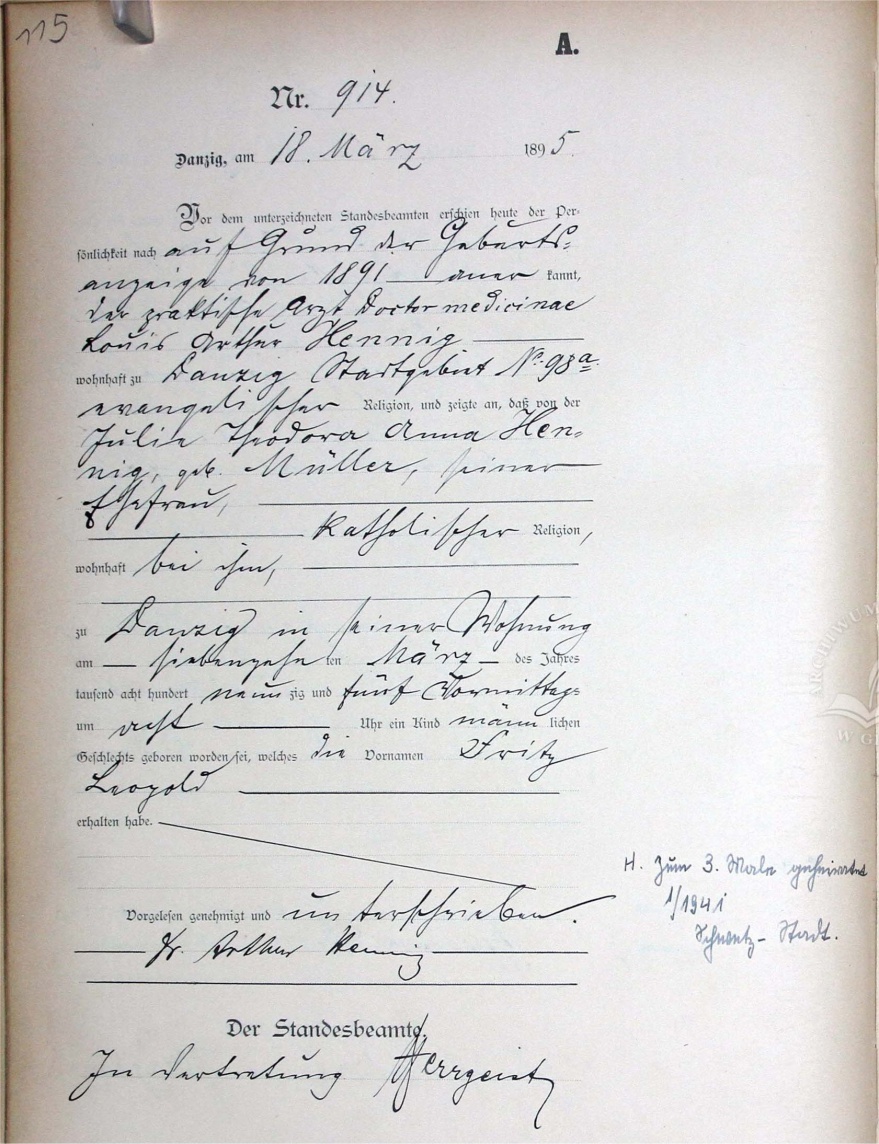 115
A.
Nr. 914.
Danzig, am 18. März 1895.
Vor dem unterzeichneten Standesbeamten erschien heute der Per-
sönlichkeit nach auf Grund der Geburts-
anzeige von 1891 — aner kannt,
der praktische Arzt Doctor medicinae
Louis Arthur Hennig
wohnhaft zu Danzig Stadtgebiet No. 98a.
evangelischer Religion, und zeigte an, daß von der
Julie Theodora Anna Hen-
nig, geb. Müller, seiner
Ehefrau,
katholischer Religion,
wohnhaft bei ihm,
zu Danzig in seiner Wohnung
am — siebenzehn ten März — des Jahres
tausend acht hundert neun zig und fünf Vormittags
um acht — Uhr ein Kind männ lichen
Geschlechts geboren worden sei, welches die Vornamen Fritz
Leopold
erhalten habe.
H. Zum 3. Male geheiratet
1/1941
Schwetz-Stadt.
Vorgelesen genehmigt und unterschrieben.
Dr. Arthur Hennig
Der Standesbeamte.
In Vertretung
ARCHIWUM
W G